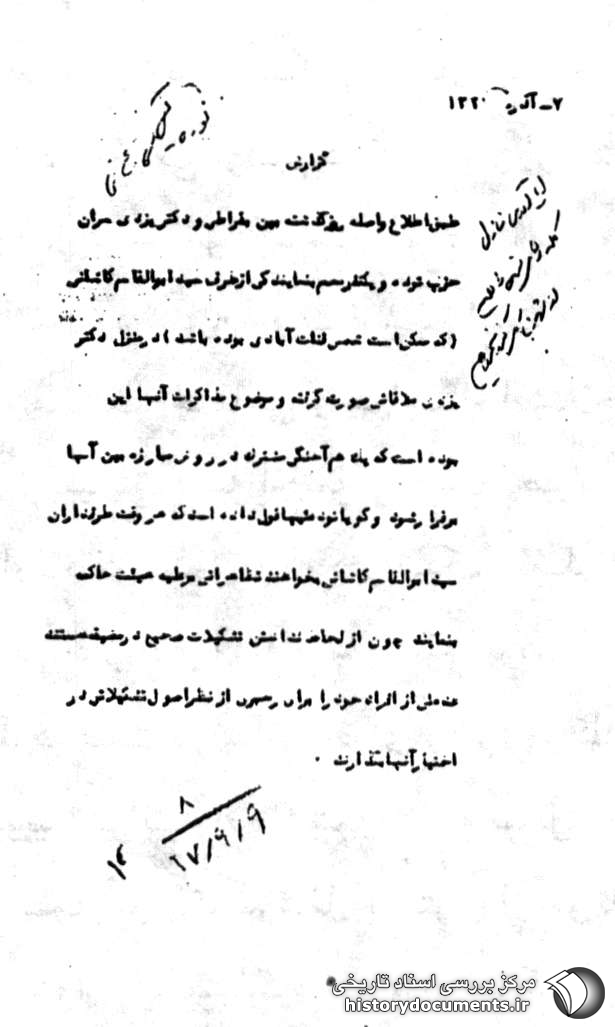 ۷ـ آذر ۱۳۳۰
گزارش
طبق اطلاع واصله روز گذشته بین بقراطی و دکتر یزدی سران
حزب توده و یکنفر هم بنمایندگی از طرف سید ابوالقاسم کاشانی
(که ممکن است شمس قنات آبادی بوده باشد) در منزل دکتر
یزدی ملاقاتی صورت گرفته و موضوع مذاکرات آنها این
بوده است که یک هم آهنگی مشترک در روش مبارزه بین آنها
برقرار شود و گویا توده ایها قول داده اند که هر وقت طرفداران
سید ابوالقاسم کاشانی بخواهند تظاهراتی برعلیه هیئت حاکمه
بنمایند چون از لحاظ نداشتن تشکیلات صحیح در مضیقه هستند
عده ای از افراد خود را برای رهبری از نظر اصول تشکیلاتی در
اختیار آنها بگذارند .
۸
۱۷/۹/۹
۱۴
مرکز بررسی اسناد تاریخی
historydocuments.ir